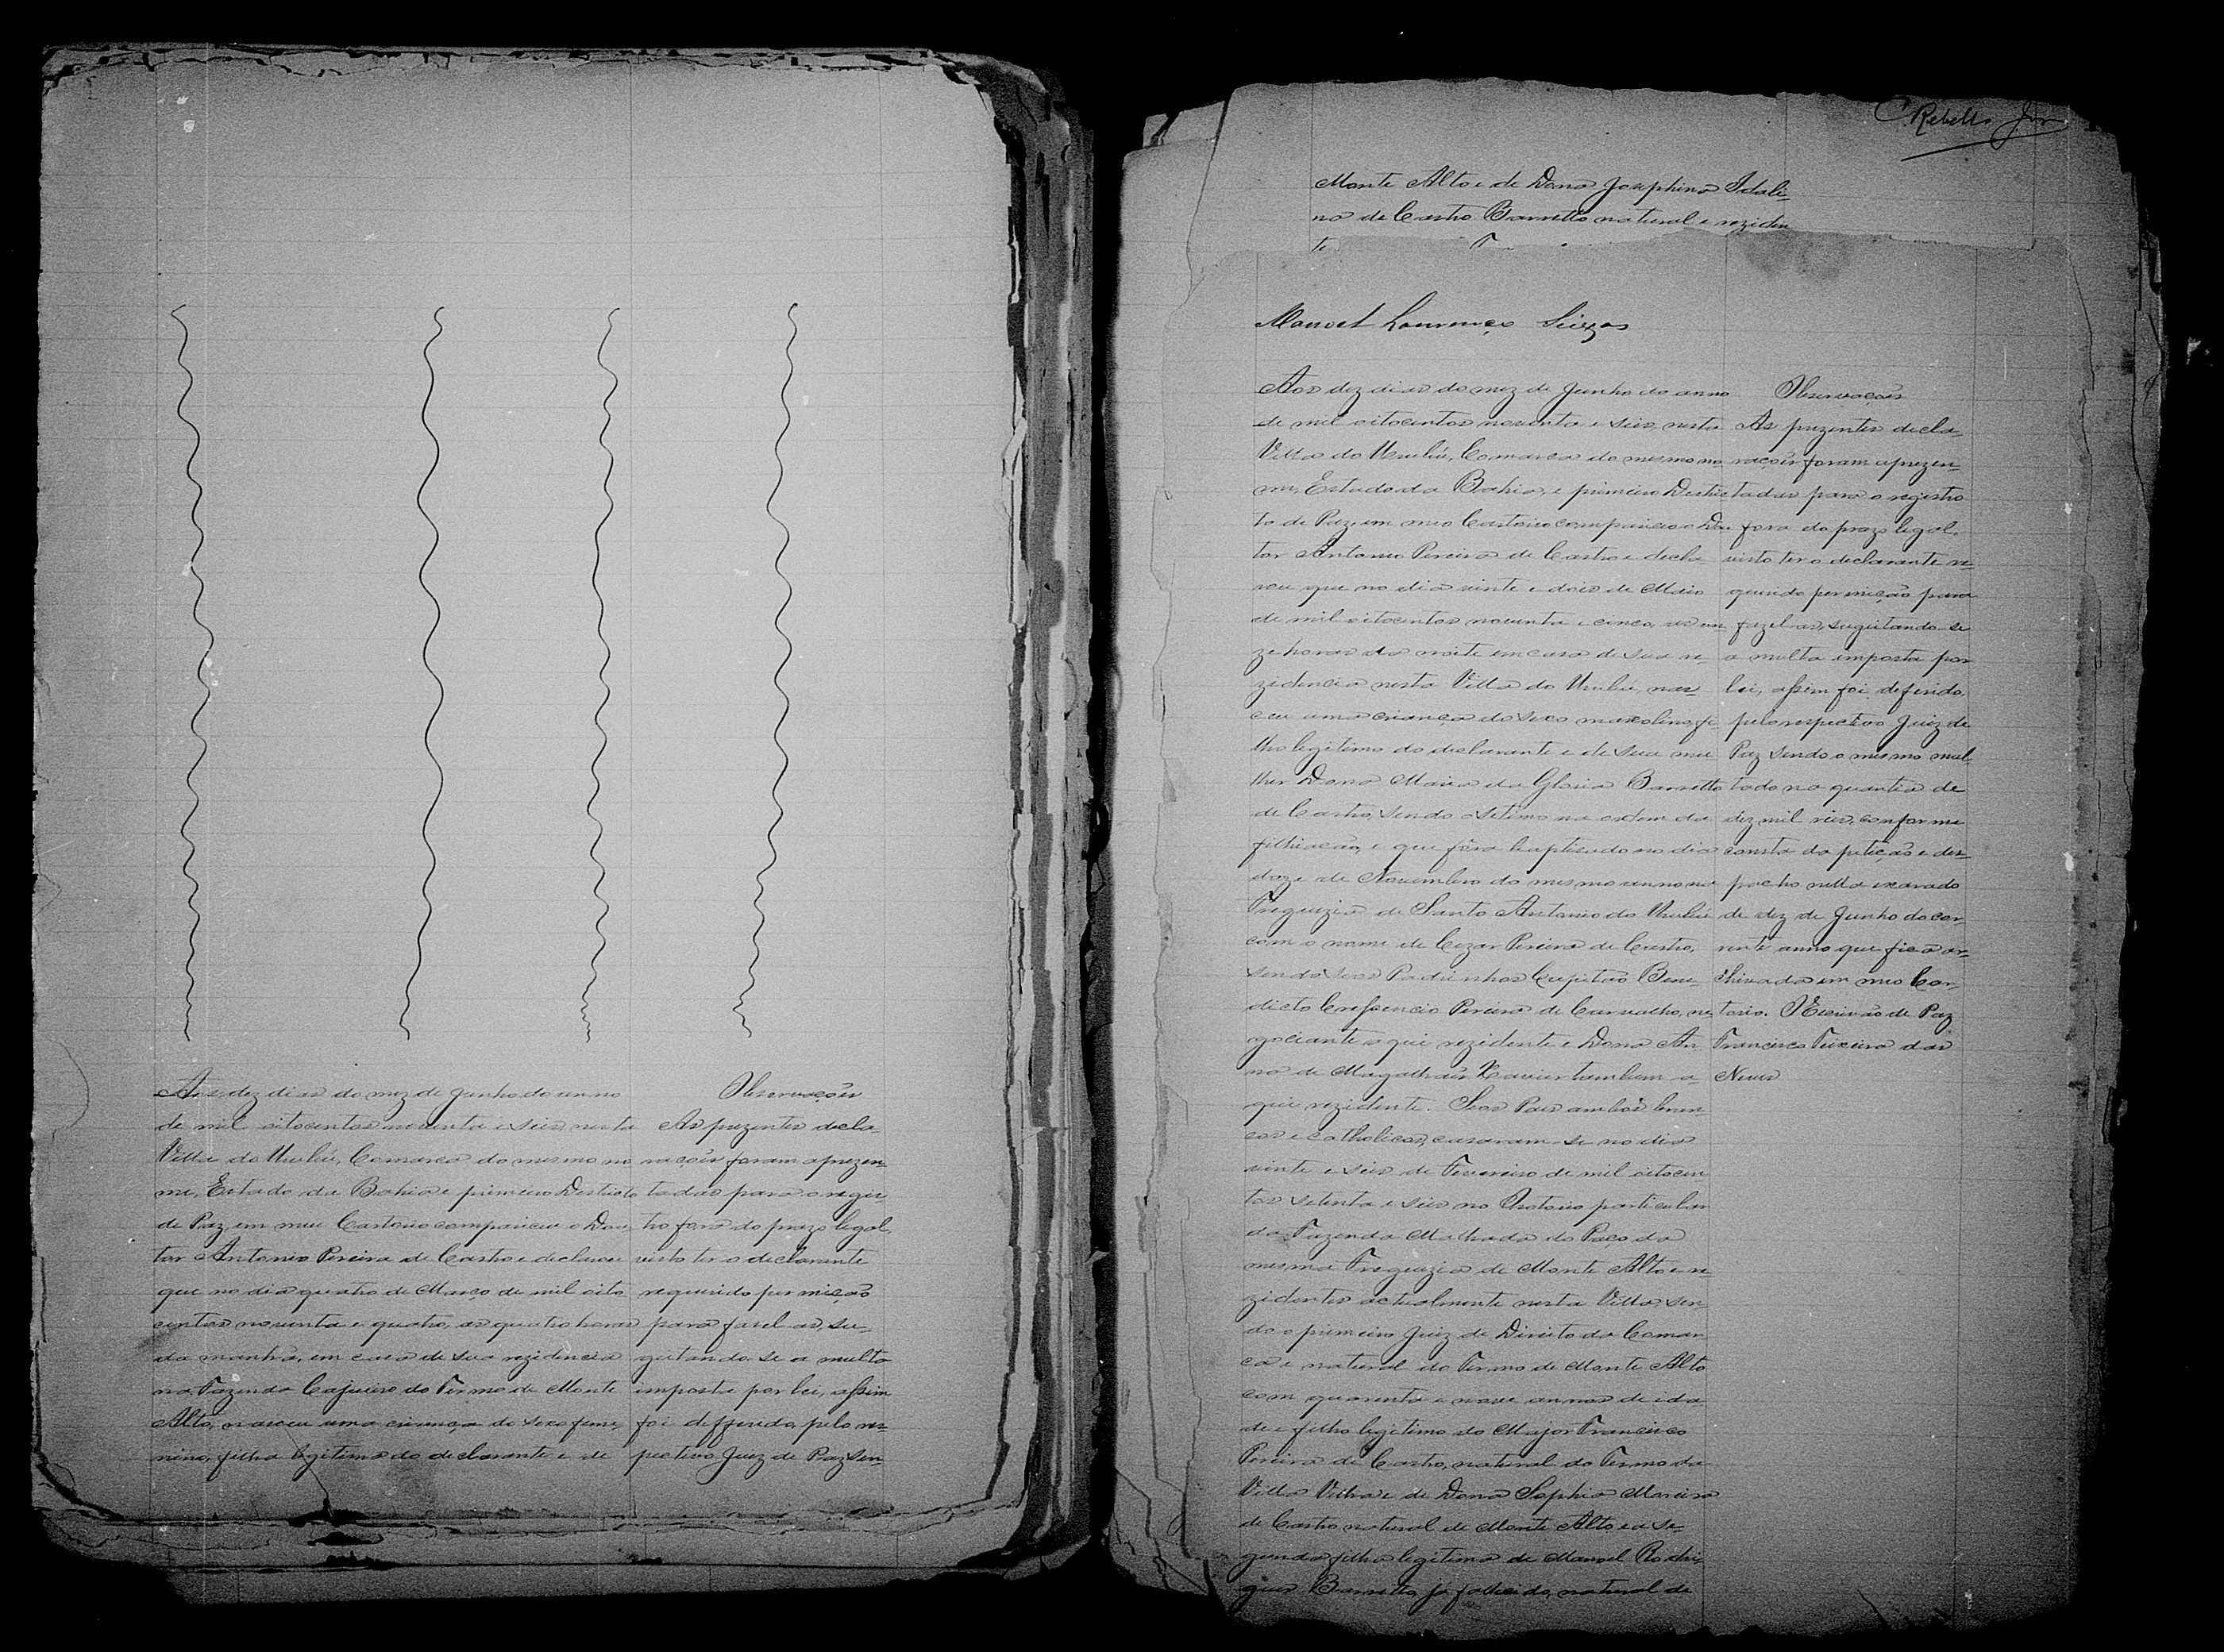 Aos dez dias do mez de Junho do anno
de mil oitocentos noventa e seis nesta
Villa do Urubú, Comarca do mesmo no
me, Estado da Bahia e primeiro Districto
de Paz, em meu Cartorio compareceu o Dou
tor Antonio Pereira de Castro e declarou
que no dia quatro de Março de mil oito
centos noventa e quatro, as quatro horas
da manhã, em casa de sua rezidencia
na Fazenda Cajueiro do Termo de Monte
Alto, nasceu uma criança do sexo feme,
nino, filha legitima do declarante e de
Observações
As prezentes decla-
rações foram aprezen
tadas para o regis
tro fora do prazo legal,
visto ter o declarante
requerido permição
para fasel as, su-
geitando-se a multa
imposta por lei, assim
foi defferido, pelo res
pectivo Juiz de Paz sen
C Rebello Jor
Monte Alto e de Dona Josephina Idali-
na de Castro Barretto natural e reziden
te
Manoel Lourenço Seixas
Aos dez dias do mez de Junho do anno
de mil oitocentos noventa e seis, nesta
Villa do Urubú, Comarca do mesmo no
me, Estado da Bahia, e primeiro Distric
to de Paz, em meo Cartorio compareceo o Dou
tor Antonio Pereira de Castro e decla
rou que no dia vinte e dois de Maio
de mil oitocentos noventa e cinco, as on
ze horas da noite em casa de sua re-
zidencia nesta Villa do Urubú, nas
ceu uma criança do sexo mascolino, fi
lho legitimo do declarante e de sua mu
lher Dona Maria da Gloria Barretto
de Castro, sendo o setimo na ordem da
filhiação, e que fôra baptisado no dia
doze de Novembro do mesmo anno na
Freguizia de Santo Antonio do Urubú
com o nome de Cezar Pereira de Castro,
sendo seos Padrinhos Capitão Bene-
dicto Crescencio Pereira de Carvalho, ne
gociante aqui rezidente e Dona An
na de Magalhães Xavier tambem a
qui rezidente. Seos Paes ambos bran-
cos e catholicos, casaram-se no dia
vinte e seis de Fevereiro de mil oitocen
tos setenta e seis no Oratorio particular
da Fazenda Malhada do Paço da
mesma Freguizia de Monte Alto e re
zidentes actualmente nesta Villa, sen
do o primeiro Juiz de Direito da Comar
ca e natural do Termo de Monte Alto
com quarenta e nove annos de ida
de e filho legitimo do Major Francisco
Pereira de Castro, natural do Termo da
Villa Velha e de Dona Sophia Moreira
de Castro natural de Monte Alto e a se-
gunda filha legitima de Manoel Rodri-
gues Barretto, já falhecido, natural de
Observações
As prezentes decla-
rações foram aprezen
tadas para o registro
fora do prazo legal,
visto ter o declarante re-
querido permição para
fazel-as, sugeitando-se
a multa imposta por
lei, assim foi deferido,
pelo respectivo Juiz de
Paz sendo o mesmo mul-
tado na quantia de
dez mil reis, conforme
consta da petição e des-
pacho nella exarado
de dez de Junho do cor-
rente anno que fica ar-
chivada em meo Car-
torio. O Escrivão de Paz
Francisco Teixeira das
Neves